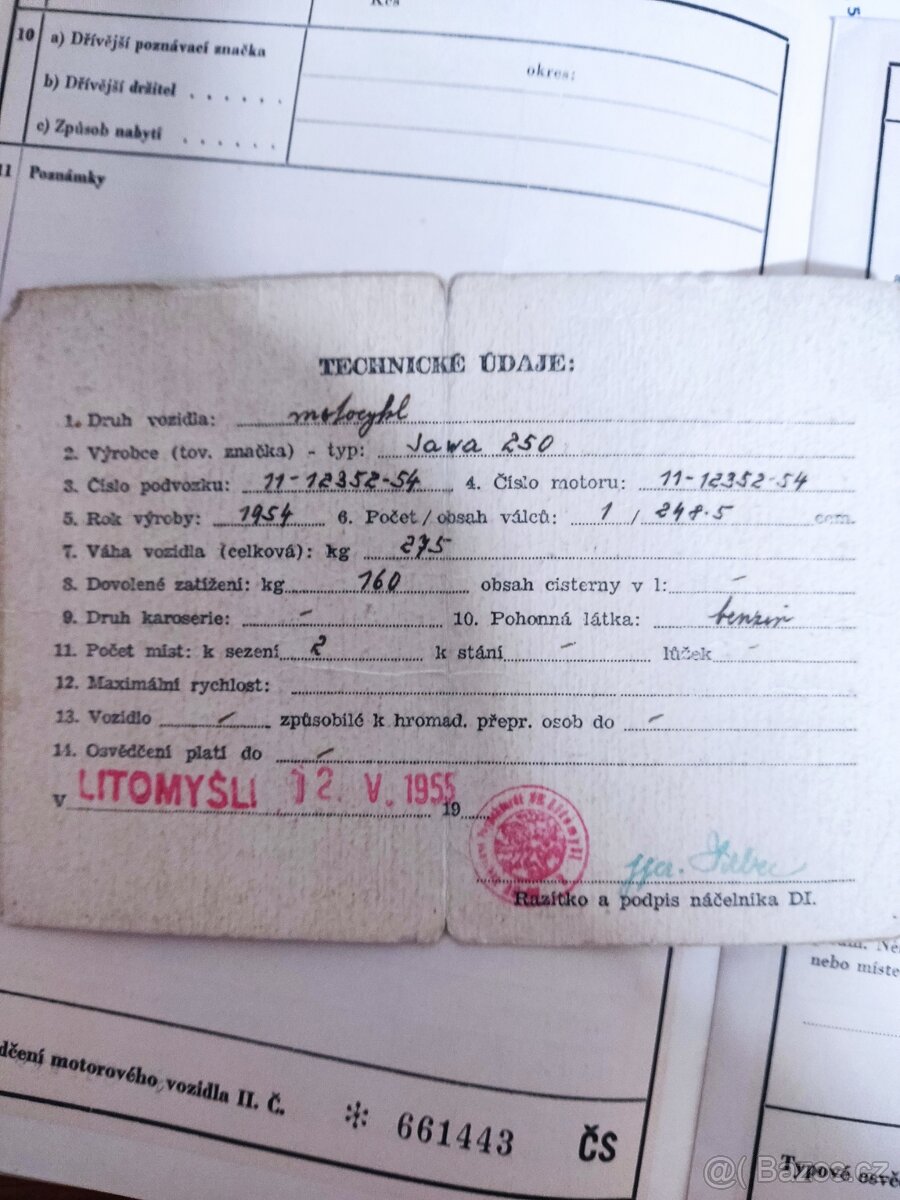 10 a) Dřívější poznávací značka
okres:
b) Dřívější držitel . . . . . .
c) Způsob nabytí . . . . . .
11 Poznámky
5
TECHNICKÉ ÚDAJE:
1. Druh vozidla: motocykl
2. Výrobce (tov. značka) - typ: Jawa 250
3. Číslo podvozku: 11-12352-54 4. Číslo motoru: 11-12352-54
5. Rok výroby: 1954 6. Počet/obsah válců: 1 / 248.5 ccm.
7. Váha vozidla (celková): kg 275
8. Dovolené zatížení: kg 160 obsah cisterny v l: -
9. Druh karoserie: - 10. Pohonná látka: benzin
11. Počet míst: k sezení 2 k stání - lůžek -
12. Maximální rychlost:
13. Vozidlo - způsobilé k hromad. přepr. osob do -
14. Osvědčení platí do -
V LITOMYŠLI 12. V. 1955 19
Razítko a podpis náčelníka DI.
nebo míste
dčení motorového vozidla II. Č. * 661443 ČS
Typové osvě
@ Bazos.cz